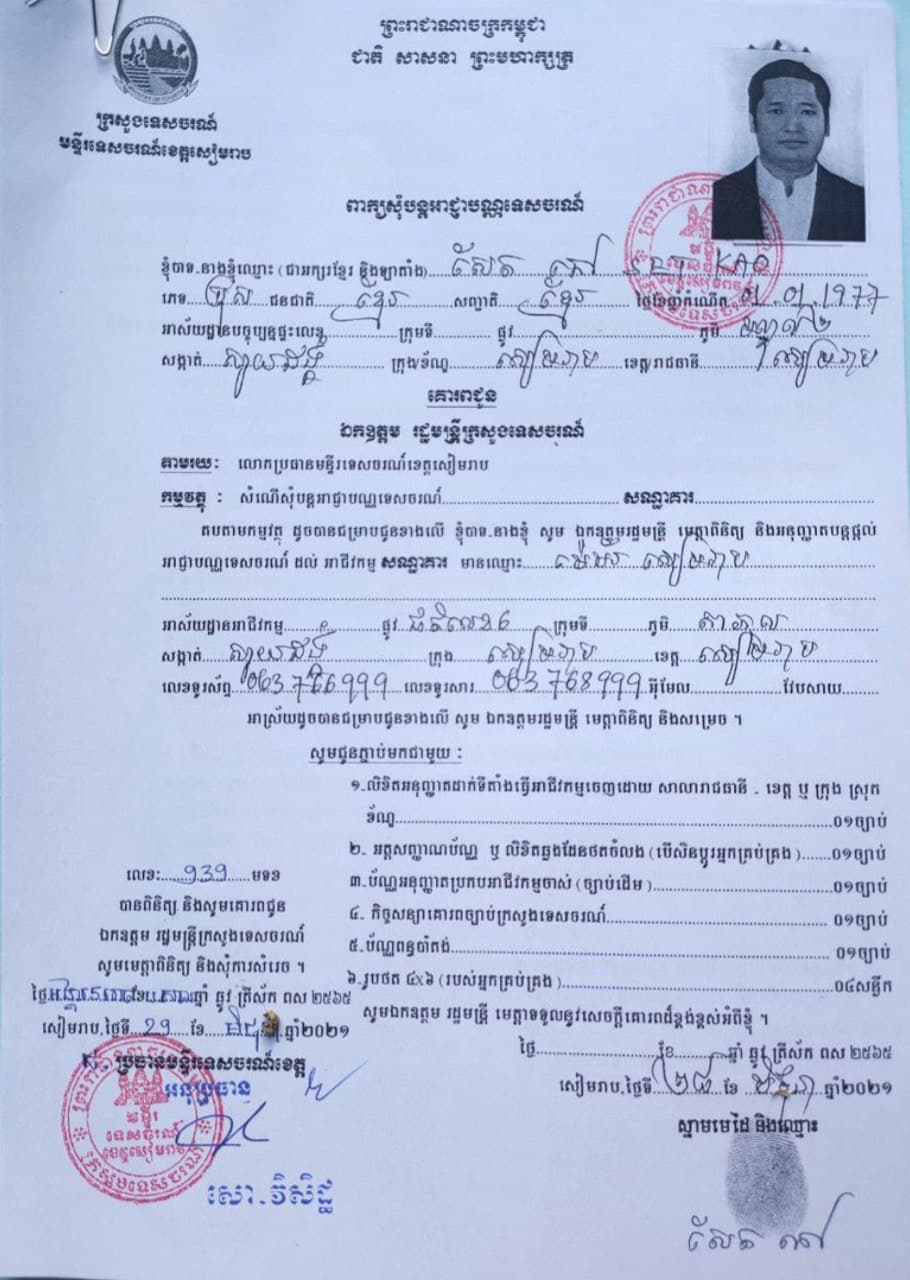 ព្រះរាជាណាចក្រកម្ពុជា
ជាតិ សាសនា ព្រះមហាក្សត្រ
ក្រសួងទេសចរណ៍
មន្ទីរទេសចរណ៍ខេត្តសៀមរាប
ពាក្យសុំបន្តអាជ្ញាបណ្ណទេសចរណ៍
ខ្ញុំបាទ.នាងខ្ញុំឈ្មោះ (ជាអក្សរខ្មែរ និងឡាតាំង) សែត កៅ
ភេទ ប្រុស ជនជាតិ ខ្មែរ សញ្ជាតិ ខ្មែរ ថ្ងៃខែឆ្នាំកំណើត 01.01.1977
អាស័យដ្ឋានបច្ចុប្បន្នផ្ទះលេខ ក្រុមទី ផ្លូវ ភូមិ
សង្កាត់ ស្វាយដង្គំ ក្រុង/ខ័ណ្ឌ សៀមរាប ខេត្ត/រាជធានី សៀមរាប
គោរពជូន
ឯកឧត្តម រដ្ឋមន្ត្រីក្រសួងទេសចរណ៍
តាមរយៈ លោកប្រធានមន្ទីរទេសចរណ៍ខេត្តសៀមរាប
កម្មវត្ថុ : សំណើសុំបន្តអាជ្ញាបណ្ណទេសចរណ៍ សណ្ឋាគារ
តបតាមកម្មវត្ថុ ដូចបានជម្រាបជូនខាងលើ ខ្ញុំបាទ.នាងខ្ញុំ សូម ឯកឧត្តមរដ្ឋមន្ត្រី មេត្តាពិនិត្យ និងអនុញ្ញាតបន្តផ្តល់
អាជ្ញាបណ្ណទេសចរណ៍ ដល់ អាជីវកម្ម សណ្ឋាគារ មានឈ្មោះ សៀមរាប
អាស័យដ្ឋានអាជីវកម្ម ផ្លូវ ជាតិលេខ6 ក្រុមទី ភូមិ តាភុល
សង្កាត់ ស្វាយដង្គំ ក្រុង សៀមរាប ខេត្ត សៀមរាប
លេខទូរស័ព្ទ លេខទូរសារ 063 768 999 អ៊ីមែល វែបសាយ
អាស្រ័យដូចបានជម្រាបជូនខាងលើ សូម ឯកឧត្តមរដ្ឋមន្ត្រី មេត្តាពិនិត្យ និងសម្រេច ។
សូមជូនភ្ជាប់មកជាមួយ :
១.លិខិតអនុញ្ញាតដាក់ទីតាំងធ្វើអាជីវកម្មចេញដោយ សាលារាជធានី - ខេត្ត ឬ ក្រុង ស្រុក
ខ័ណ្ឌ ០១ច្បាប់
២. អត្តសញ្ញាណប័ណ្ណ ឬ លិខិតឆ្លងដែនថតចំលង (បើសិនប្តូរអ្នកគ្រប់គ្រង) ០១ច្បាប់
៣.ប័ណ្ណអនុញ្ញាតប្រកបអាជីវកម្មចាស់ (ច្បាប់ដើម) ០១ច្បាប់
៤. កិច្ចសន្យាគោរពច្បាប់ក្រសួងទេសចរណ៍ ០១ច្បាប់
៥.ប័ណ្ណពន្ធប៉ាតង់ ០១ច្បាប់
៦.រូបថត ៤x៦ (របស់អ្នកគ្រប់គ្រង) ០៤សន្លឹក
សូមឯកឧត្តម រដ្ឋមន្ត្រី មេត្តាទទួលនូវសេចក្តីគោរពដ៏ខ្ពង់ខ្ពស់អំពីខ្ញុំ ។
ថ្ងៃ ខែ ឆ្នាំ ឆ្លូវ ត្រីស័ក ពស ២៥៦៥
សៀមរាប,ថ្ងៃទី ២៨ ខែ ឆ្នាំ២០២១
ស្នាមមេដៃ និងឈ្មោះ
សែត កៅ
លេខ: 939 មទខ
បានពិនិត្យ និងសូមគោរពជូន
ឯកឧត្តម រដ្ឋមន្ត្រីក្រសួងទេសចរណ៍
សូមមេត្តាពិនិត្យ និងសុំការសំរេច ។
ថ្ងៃ ខែ ឆ្នាំ ឆ្លូវ ត្រីស័ក ពស ២៥៦៥
សៀមរាប,ថ្ងៃទី 29 ខែ មិថុនា ឆ្នាំ២០២១
ប្រធានមន្ទីរទេសចរណ៍ខេត្ត
អនុប្រធាន
សោ.វិសិដ្ឋ